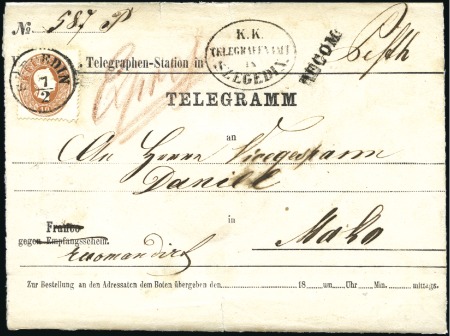 № 587 P
K. K.
TELEGRAFENAMT
IN
SZEGEDIN
RECOM:
Telegraphen-Station in Pesth
7/2
TELEGRAMM
an
An Herrn Vicegespann
Daniel
Franco
gegen Empfangsschein.
in
Mako
recomandirt
Zur Bestellung an den Adressaten dem Boten übergeben den 18 um Uhr Min. mittags.